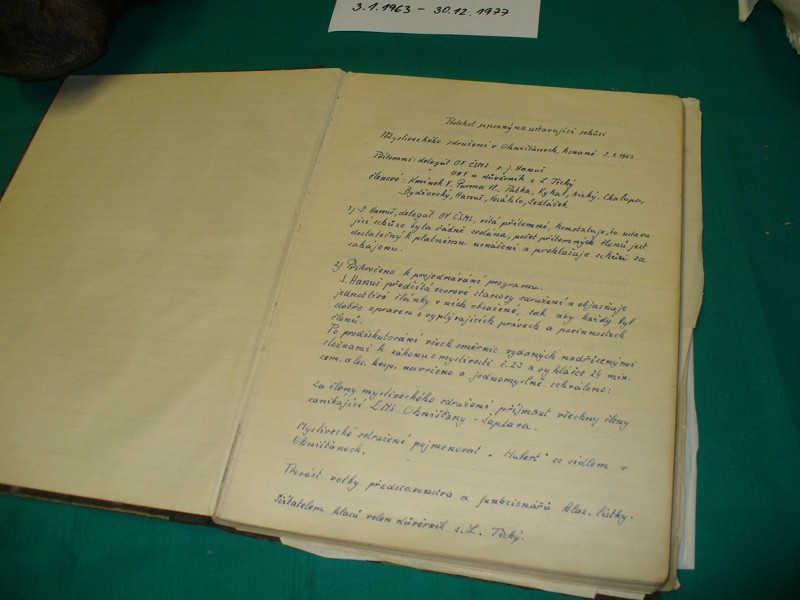 3.1.1963 – 30.12.1977
Protokol sepsaný na ustavující schůzi
Mysliveckého sdružení v Ohništanech, konané 3.1.1963.
Přítomni: delegát OV ČSMS s. J. Hanuš
ONV a důvěrník s. L. Tichý
členové: Kmínek V., Purma M., Paška, Kykal, Lický, Chalupa,
Bydžovský, Hanuš, Sedláček
1) S. Hanuš, delegát OV ČSMS, vítá přítomné, konstatuje, že ustavu-
jící schůze byla řádně svolána, počet přítomných členů jest
dostatečný k platnému usnášení a prohlašuje schůzi za
zahájenu.
2) Přikročeno k projednávání programu.
S. Hanuš předčítá vzorové stanovy sdružení a objasňuje
jednotlivé články v nich obsažené, tak aby každý byl
dobře zpraven o vyplývajících právech a povinnostech
členů.
Po prodiskutování všech směrnic vydaných nadřízenými
složkami k zákonu o myslivosti č. 23 a vyhlášce 24 min.
zem. a les. hosp. navrženo a jednomyslně schváleno:
Za členy mysliveckého sdružení přijmout všechny členy
zanikající LMS Ohništany - Šaplava.
Myslivecké sdružení pojmenovat „Hubert" se sídlem v
Ohništanech.
Provést volby předsednictva a funkcionářů hlas. lístky.
Sčitatelem hlasů volen důvěrník s. L. Tichý.